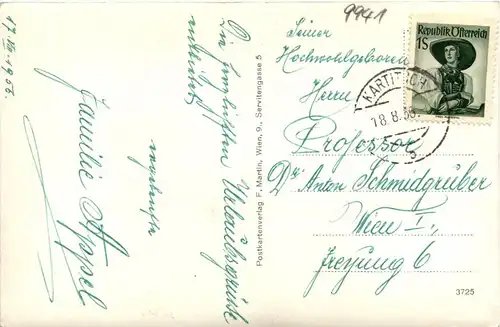 17.VIII.1956.
Die herzlichsten Urlaubsgrüsse
Familie Appel
Postkartenverlag F. Martin, Wien, 9., Servitengasse 5
9941
Republik Österreich
1S
KARTITSCH
18.8.56
Seiner
Hochwohlgeboren
Herrn
Professor
Dr Anton Schmidgruber
Wien I.,
Freyung 6
3725